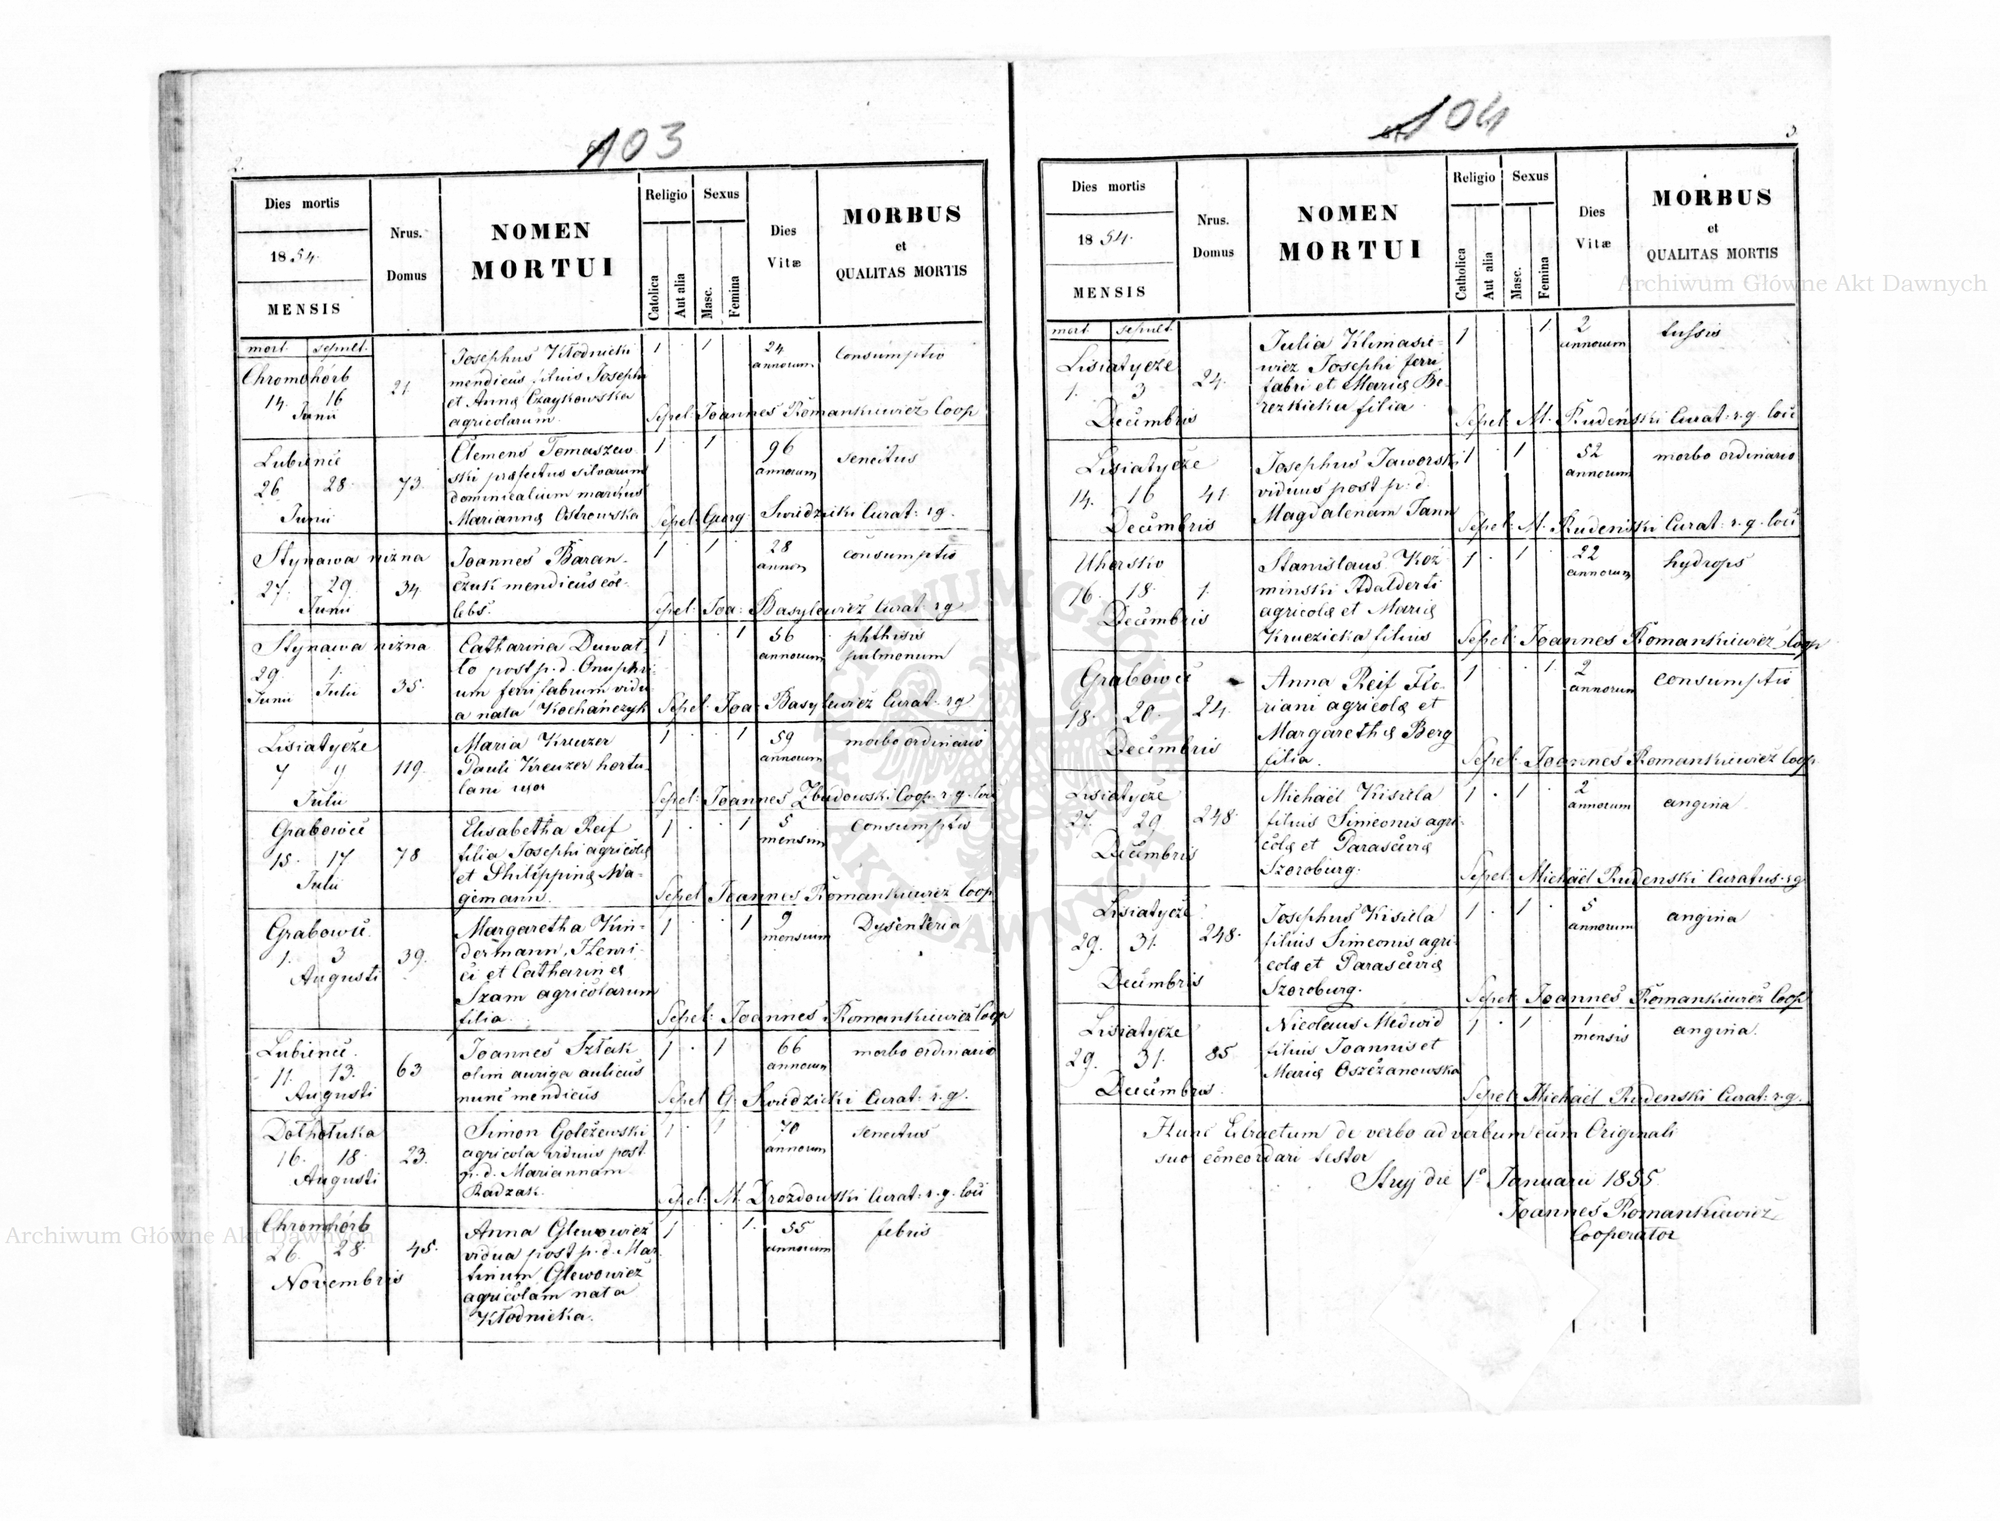 103
2.
Dies mortis
1854.
MENSIS
Nrus.
Domus
NOMEN
MORTUI
Religio
Catolica
Aut alia
Sexus
Masc.
Femina
Dies
Vitæ
MORBUS
et
QUALITAS MORTIS
mort. sepult.
Chromohórb
14. 16
Junii
21
Josephus Kłodnicki
mendicus filius Josephi
et Annæ Czaykowska
agricolarum.
1 1
24
annorum
Consumptio
Sepel: Joannes Romankiewicz Coop
Lubience
26 28.
Junii
73.
Clemens Tomaszew-
ski præfectus silvarum
dominicalium maritus
Mariannæ Ostrowska
1 1
96
annorum
senectus
Sepel: Georg Swidzicki Curat: r.g.
Stynawa niżna
27. 29.
Junii
34.
Joannes Baran-
czuk mendicus coe-
lebs.
1 1
28
annor.
consumptio
Sepel: Joa: Basylewicz Curat: r.g
Stynawa niżna
29. 1.
Junii Julii
35.
Catharina Duwal-
ło post p.d. Onuphri-
um ferri fabrum vidu-
a nata Kochańczyk
1 1
56
annorum
phthisis
pulmonum
Sepel: Joa: Basylewicz Curat: r.g
Lisiatycze
7 9
Julii
119.
Maria Kreuzer
Pauli Kreuzer hortu-
lani uxor
1 1
59
annorum
morbo ordinario
Sepel: Joannes Zbudowski Coop. r.g. loci
Grabowce
15. 17
Julii
78
Elisabetha Reif
filia Josephi agricolæ
et Philippinæ Wa-
gemann.
1 1
5
mensium
Consumptio
Sepel: Joannes Romankiewicz Coop.
Grabowce.
1. 3
Augusti
39.
Margaretha Kin-
dermann, Henri-
ci et Catharinæ
Szam agricolarum
filia.
1 1
9
mensium
Dysenteria
Sepel: Joannes Romankiewicz Coop
Lubience.
11. 13.
Augusti
63
Joannes Szłak
olim auriga aulicus
nunc mendicus
1 1
66
annorum
morbo ordinario
Sepel: G. Swidzicki Curat: r.g.
Dołhołuka
16. 18.
Augusti
23.
Simon Golczewski
agricola viduus post
p.d. Mariannam
Radzak.
1 1
70
annorum
senectus
Sepel: M. Drozdowski Curat: r.g. loci
Chromohórb
26. 28.
Novembris
45.
Anna Glewowicz
vidua post p.d. Mar-
tinum Glewowicz
agricolam nata
Kłodnicka.
1 1.
55
annorum
febris
104
3
Dies mortis
1854.
MENSIS
Nrus.
Domus
NOMEN
MORTUI
Religio
Catholica
Aut alia
Sexus
Masc.
Femina
Dies
Vitæ
MORBUS
et
QUALITAS MORTIS
mort. sepult.
Lisiatycze
1. 3
Decembris
24.
Julia Klimasie-
wicz Josephi ferri
fabri et Mariæ Be-
rezkicka filia.
1 1
2
annorum
tussis
Sepel: M. Rudeński Curat: r.g. loci
Lisiatycze
14. 16
Decembris
41.
Josephus Jaworski
viduus post p. d.
Magdalenam Jann
1 1
52
annorum
morbo ordinario
Sepel: M. Rudeński Curat: r.g. loci
Uhersko
16. 18.
Decembris
1.
Stanislaus Koz-
minski Adalberti
agricolæ et Mariæ
Kruczicka filius
1 1
22
annorum
hydrops
Sepel: Joannes Romankiewicz Coop
Grabowce
18. 20.
Decembris
24.
Anna Reif Flo-
riani agricolæ et
Margarethæ Berg
filia.
1 1.
2
annorum
consumptio
Sepel: Joannes Romankiewicz Coop
Lisiatycze
27. 29
Decembris
248.
Michaël Kisiela
filius Simeonis agri-
colæ et Parascevæ
Szoroburg.
1 1
2
annorum
angina
Sepel: Michaël Rudenski Curatus r.g
Lisiatycze
29. 31.
Decembris
248.
Josephus Kisiela
filius Simeonis agri-
colæ et Parascevæ
Szoroburg.
1 1
5
annorum
angina
Sepel: Joannes Romankiewicz Coop
Lisiatycze
29. 31.
Decembris.
85
Nicolaus Medwid
filius Joannis et
Mariæ Oszczanowska
1 1
1
mensis
angina.
Sepel: Michaël Rudenski Curat: r.g.
Hunc Extractum de verbo ad verbum cum Originali
suo concordari testor
Stryj die 1° Januarii 1855
Joannes Romankiewicz
Cooperator
Archiwum Główne Akt Dawnych
Archiwum Główne Akt Dawnych